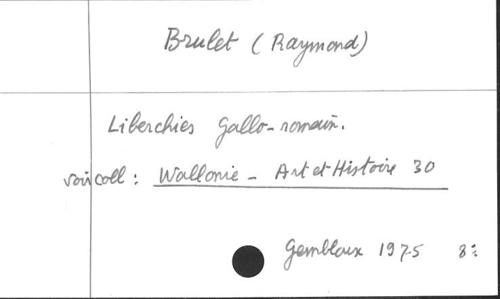 Brulet (Raymond)
Liberchies gallo-romain.
voir coll : Wallonie - Art et Histoire 30
Gembloux 1975 8°